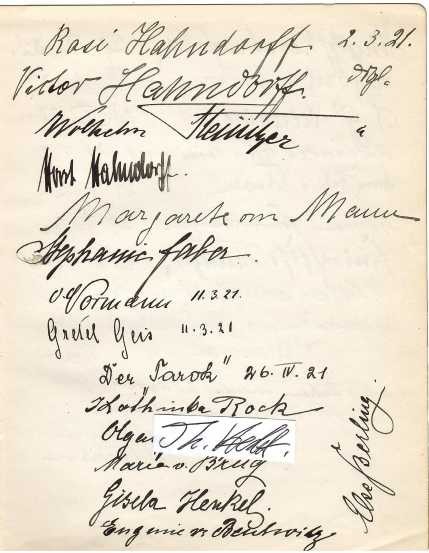 Rosi Hahndorff. 2.3.21.
Victor Hahndorff. dtgl.
Wilhelm "
Horst Hahndorff.
Margarete von Mann
Stephanie Faber.
v. Vormann 11.3.21.
Gretel Geis 11.3.21
"Der Tarok" 26.IV.21
Käthinka Rock
Olga
Maria v. Brug
Gisela Henkel.
Eugenie v. Beulwitz
Else Berling.